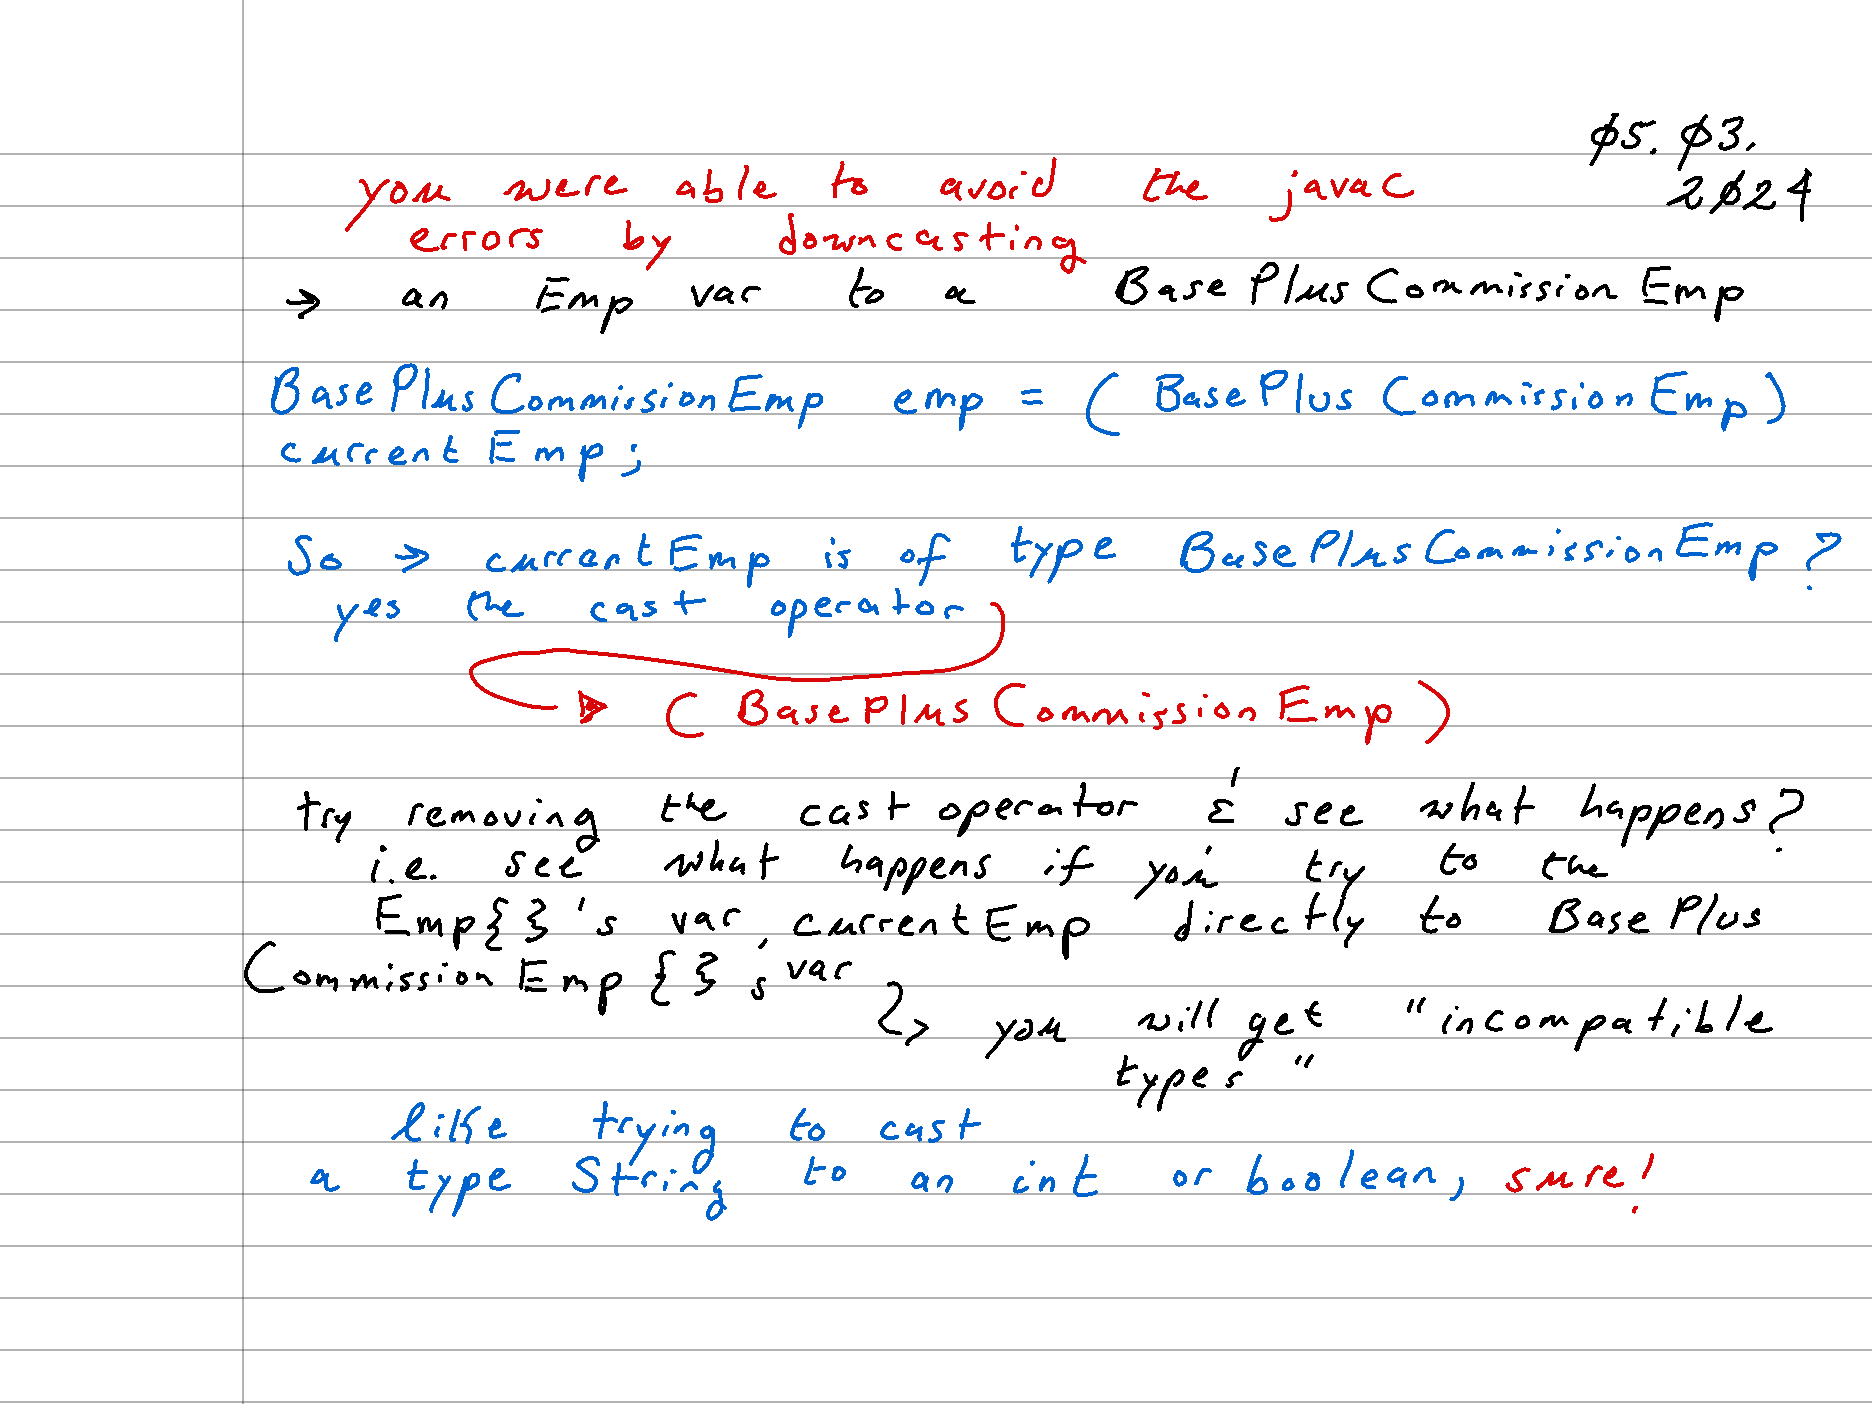 ø5. ø3.
2ø24
you were able to avoid the javac
errors by downcasting
→ an Emp var to a BasePlusCommissionEmp
BasePlusCommissionEmp emp = (BasePlusCommissionEmp)
currentEmp;
So → currentEmp is of type BasePlusCommissionEmp?
yes the cast operator
(BasePlusCommissionEmp)
try removing the cast operator & see what happens?
i.e. see what happens if you try to the
Emp{}'s var, currentEmp directly to BasePlus
CommissionEmp{}'s var
↳ you will get "incompatible
types"
like trying to cast
a type String to an int or boolean, sure!